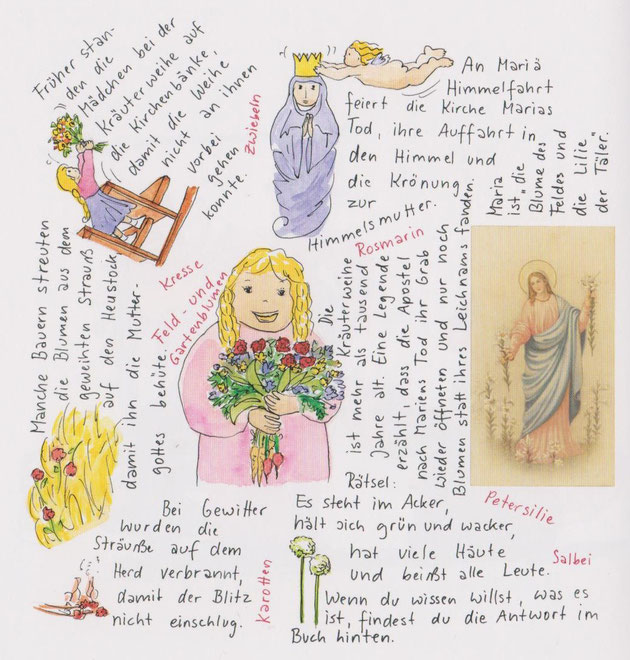 Früher stan-
den die
Mädchen bei der
Kräuterweihe auf
die Kirchenbänke,
damit die Weihe
nicht an ihnen
vorbei
gehen
konnte.
Zwiebeln
An Mariä
Himmelfahrt
feiert die Kirche Marias
Tod, ihre Auffahrt in
den Himmel und
die Krönung
zur
Himmelsmutter.
Maria
ist „die
Blume des
Feldes und
die Lilie
der Täler."
Rosmarin
Kresse
Feld- und
Gartenblumen
Manche Bauern streuten
die Blumen aus dem
geweihten Strauß
auf den Heustock
damit ihn die Mutter-
gottes behüte.
Die
Kräuterweihe
ist mehr als tausend
Jahre alt. Eine Legende
erzählt, dass die Apostel
nach Mariens Tod ihr Grab
wieder öffneten und nur noch
Blumen statt ihres Leichnams fanden.
Petersilie
Bei Gewitter
wurden die
Sträuße auf dem
Herd verbrannt,
damit der Blitz
nicht einschlug.
Karotten
Rätsel:
Es steht im Acker,
hält sich grün und wacker,
hat viele Häute
und beißt alle Leute.
Salbei
Wenn du wissen willst, was es
ist, findest du die Antwort im
Buch hinten.